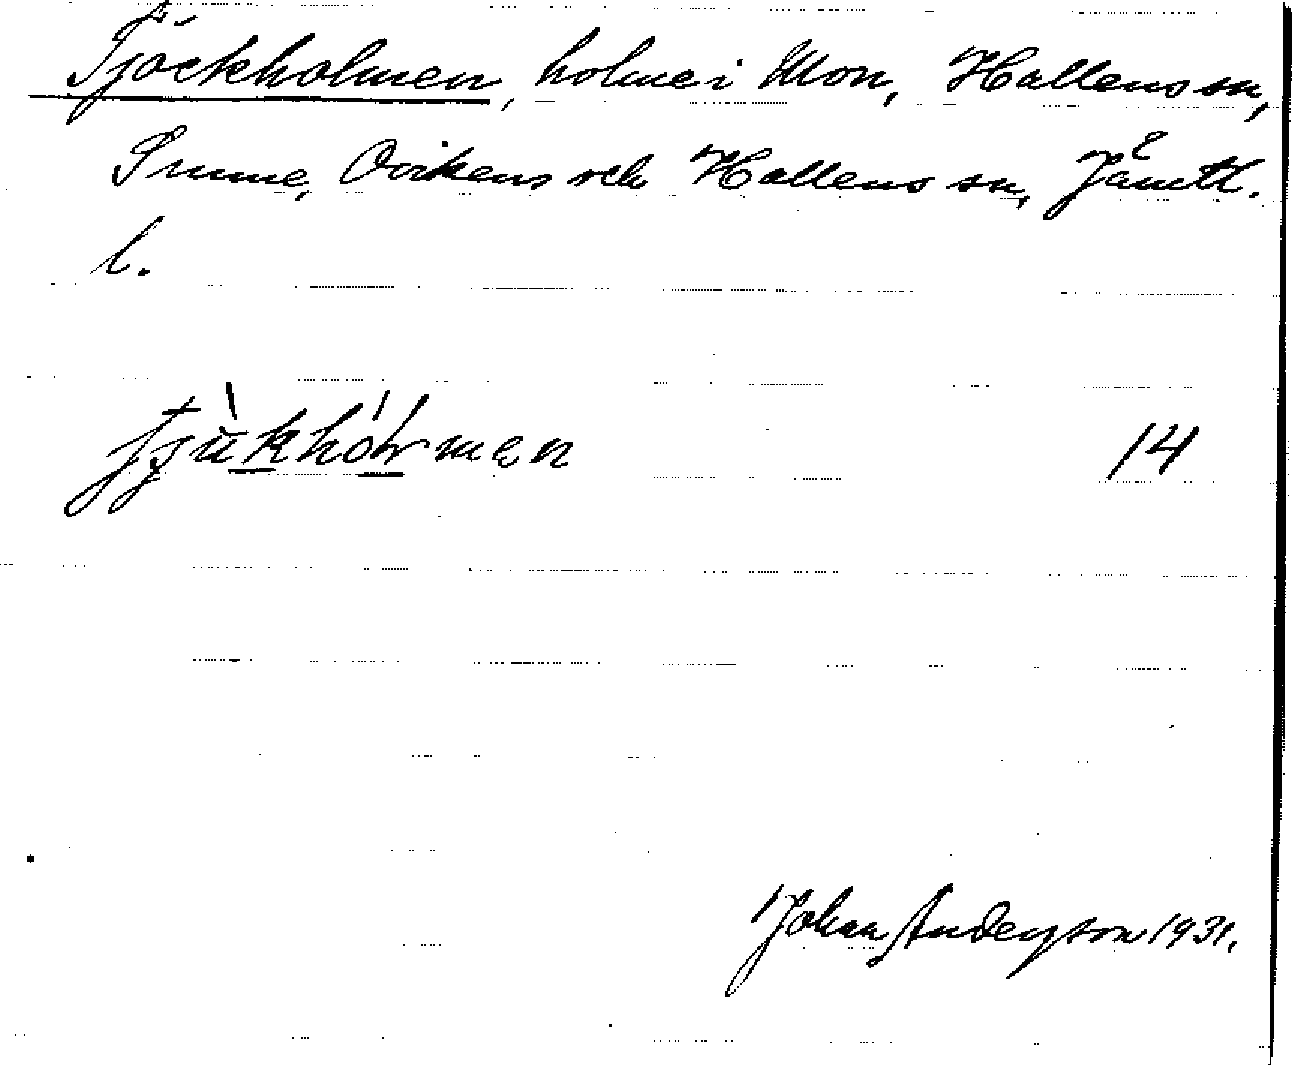 Tjöckholmen, holme i Mon, Hallens sn,
Sunne, Ovikens och Hallens sn, Jämtl.
l.
14
Johan Anderson 1931.